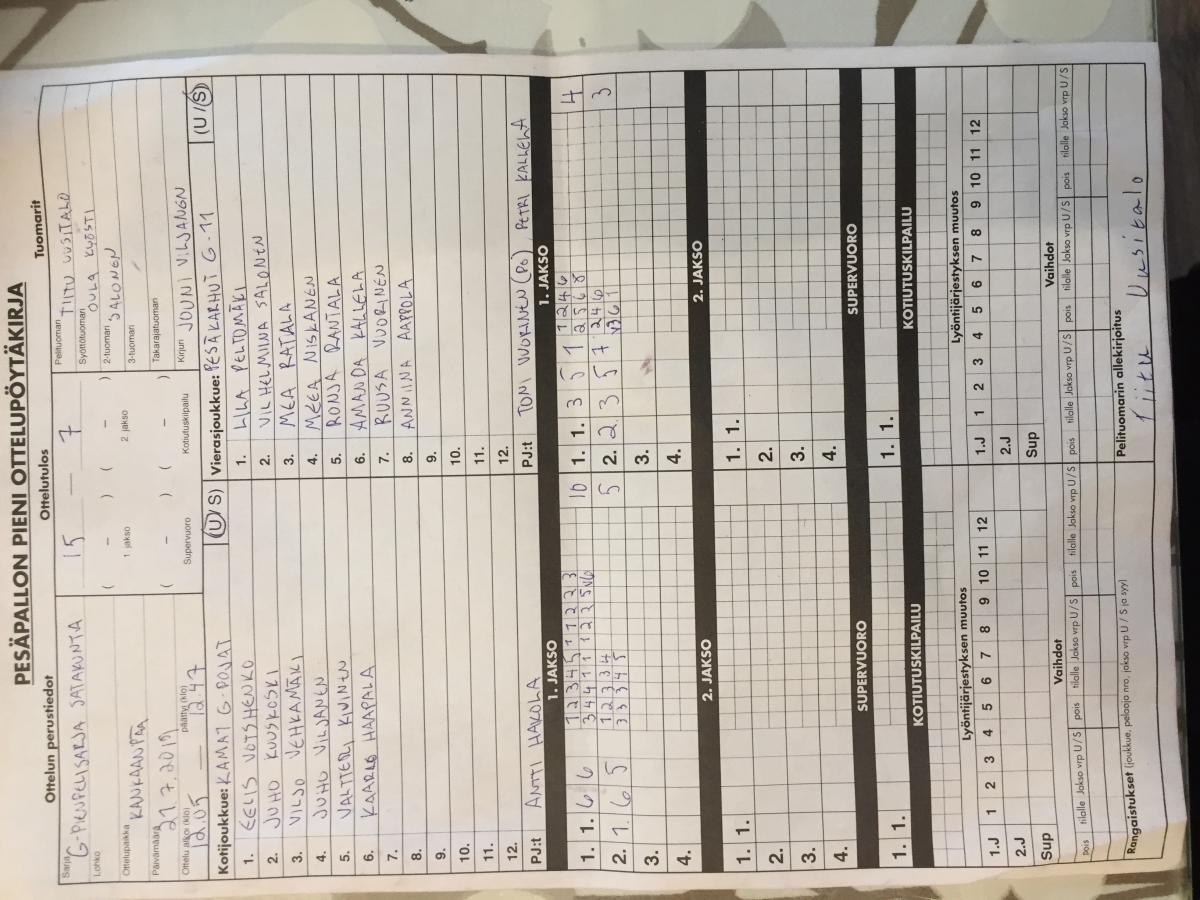 PESÄPALLON PIENI OTTELUPÖYTÄKIRJA
Ottelun perustiedot Ottelutulos Tuomarit
Sarja G-PIENPELISARJA SATAKUNTA
Lohko
Ottelupaikka KANKAANPÄÄ
Päivämäärä 21.7.2019
Ottelu alkoi (klo) 12.05 päättyi (klo) 12.47
15 — 7
( – ) ( – )
1 jakso 2. jakso
( – ) ( – )
Supervuoro Kotiutuskilpailu
Pelituomari TIITU UUSITALO
Syöttötuomari OULA KYÖSTI
2-tuomari SALONEN
3-tuomari
Takarajatuomari
Kirjuri JOUNI VILJANEN
Kotijoukkue: KAMAT G-POJAT (U/S)
1. EELIS VOTSHENKO
2. JUHO KUUSKOSKI
3. VILJO VEHKAMÄKI
4. JUHO VILJANEN
5. VALTTERI KIVINEN
6. KAARLO HAAPALA
7.
8.
9.
10.
11.
12.
PJ:t ANTTI HAKOLA
Vierasjoukkue: PESÄKARHUT G-11 (U/S)
1. LILA PELTOMÄKI
2. VILHELMIINA SALONEN
3. MEA RAJALA
4. MEEA NISKANEN
5. RONJA RANTALA
6. AMANDA KALLELA
7. RUUSA VUORINEN
8. ANNIINA AAPPOLA
9.
10.
11.
12.
PJ:t TONI VUORINEN (PO), PETRI KALLELA
1. JAKSO 1. JAKSO
1. 1. 6 6 1 2 3 4 5 1 1 2 2 3 10
3 4 4 1 1 1 2 2 5 V6
2. 1. 6 5 1 2 3 3 4 5
3 3 3 4 5
3.
4.
1. 1. 3 5 1 1 2 4 6 4
2 5 6 8
2. 2. 3 5 7 2 4 6 3
V3 6 1
3.
4.
2. JAKSO 2. JAKSO
1. 1. 1. 1.
2. 2.
3. 3.
4. 4.
SUPERVUORO SUPERVUORO
1. 1. 1. 1.
KOTIUTUSKILPAILU KOTIUTUSKILPAILU
Lyöntijärjestyksen muutos Lyöntijärjestyksen muutos
1.J 1 2 3 4 5 6 7 8 9 10 11 12 1.J 1 2 3 4 5 6 7 8 9 10 11 12
2.J 2.J
Sup Sup
Vaihdot Vaihdot
pois tilalle Jakso vrp U/S pois tilalle Jakso vrp U/S pois tilalle Jakso vrp U/S pois tilalle Jakso vrp U/S pois tilalle Jakso vrp U/S pois tilalle Jakso vrp U/S
Rangaistukset (joukkue, pelaaja nro, jakso vrp U / S ja syy) Pelituomarin allekirjoitus
Tiitu Uusitalo